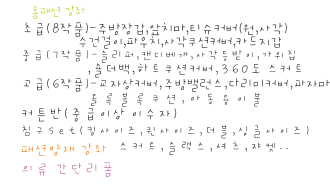 홈패션 강좌
초급(8작품)-주방장갑,앞치마,티슈커버(원,사각)
수건걸이,파우치,사각쿠션커버,카드지갑
중급(7작품)-슬리퍼,캔디베개,사각등받이,가위집
숄더백,하트쿠션커버,360도 스커트
고급(6작품)-교자상커버,주방밸런스,다리미커버,파자마
올록볼록쿠션,아동용이불
커튼반(중급이상 이수자)
침구set(킹사이즈,퀸사이즈,더블,싱글사이즈)
패션양재 강좌 스커트,슬랙스,셔츠,자켓..
의류 간단리폼